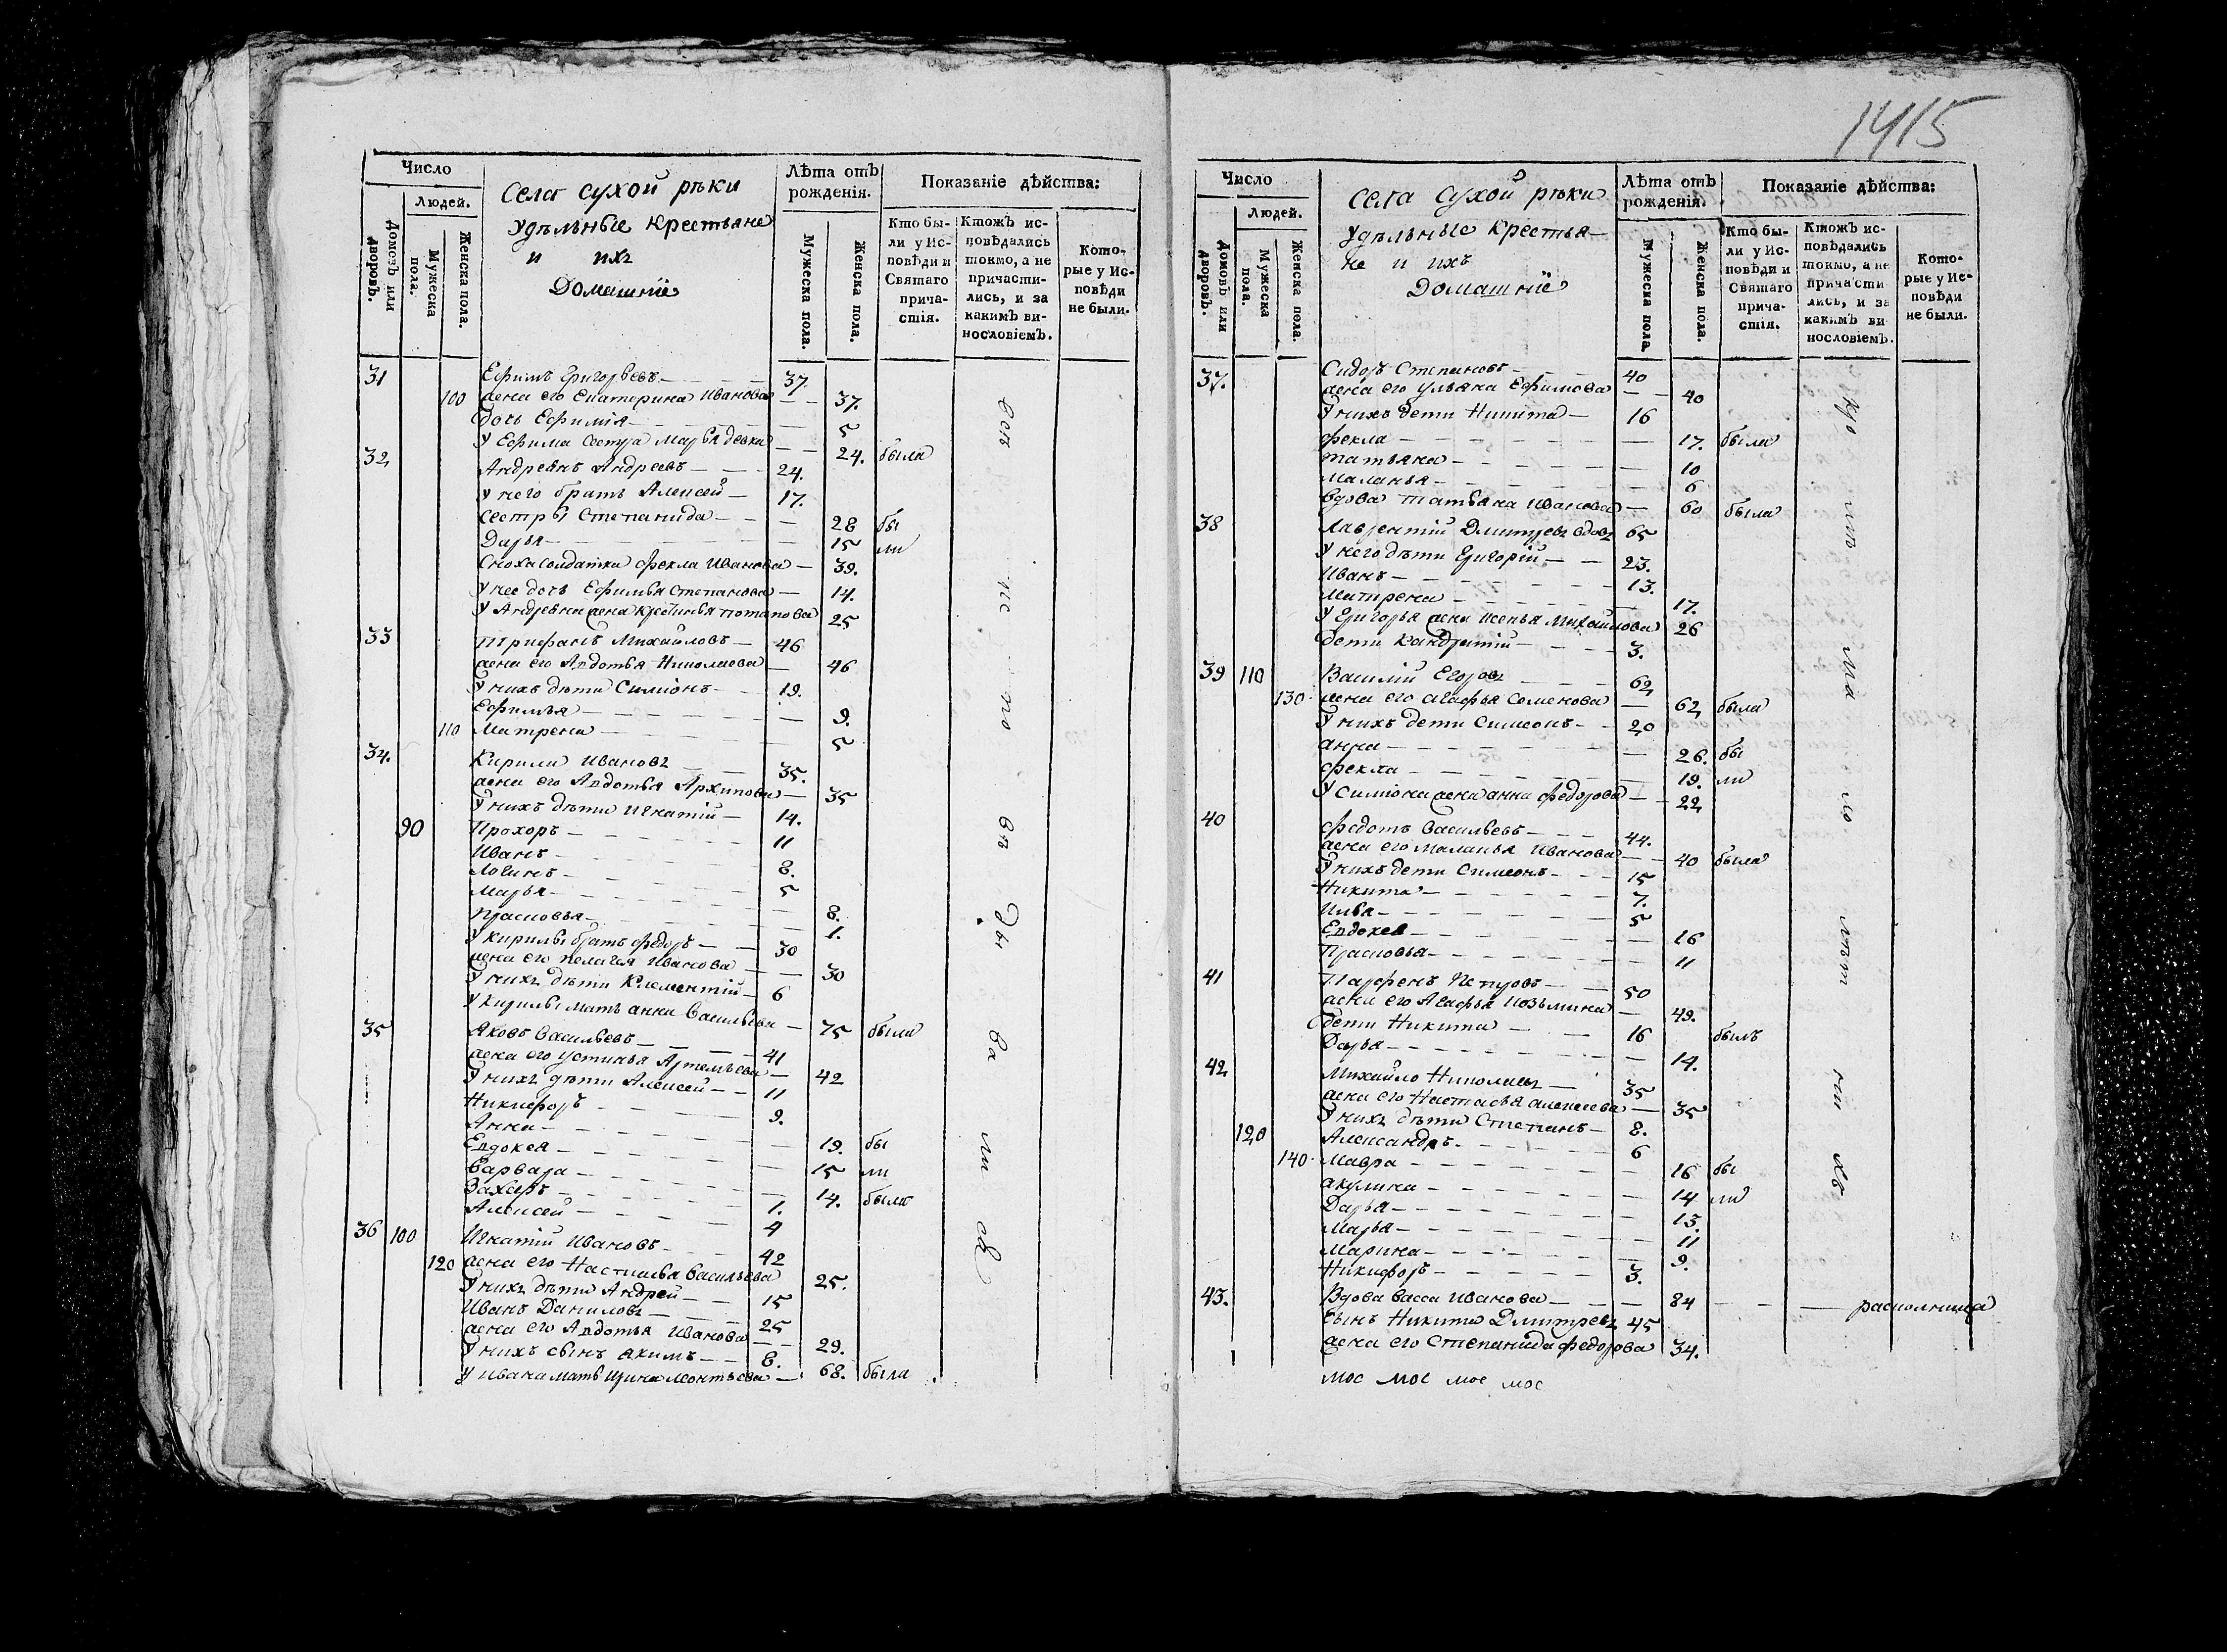 1415
Число
Людей.
Домовъ или дворовъ.
Мужеска пола.
Женска пола.
Села Сухой рѣки
удѣльные крестьяне
и ихъ
Домашніе
Лѣта отъ рожденія.
Мужеска пола.
Женска пола.
Показаніе дѣйства:
Кто бы-
ли у Ис-
повѣди и
Святаго
прича-
стія.
Ктожъ ис-
повѣдались
токмо, а не
причасти-
лись, и за
какимъ ви-
нословіемъ.
Кото-
рые у Ис-
повѣди
не были.
31 Ефимъ Григорьевъ 37.
100 жена его Екатерина Иванова 37.
дочь Ефимія 5
У Ефима сестра Марья девка 24. была
32 Андреянъ Андреевъ 24.
у него братъ Алексей 17.
сестры Степанида 28 бы
Дарья 15 ли
Сноха солдатка Фекла Иванова 39.
у нее дочь Ефимья Степанова 14.
У Андреяна жена Кретинья Потапова 25
33 Трифанъ Михайловъ 46
жена его Авдотья Николаева 46
У нихъ дѣти Симіонъ 19.
Ефимья 9.
110 Матрена 5
34. Кирила Ивановъ 35.
жена его Авдотья Архипова 35
У нихъ дѣти Игнатій 14.
90 Прохоръ 11
Иванъ 8.
Логинъ 5
Марья 8.
Прасковья 1.
У Кирилы братъ Федоръ 30
жена его Пелагея Иванова 30
У нихъ дѣти Клементій 6
У Кирилы мать Анна Васильева 75 была
35 Яковъ Васильевъ 41
жена его Устинья Артемьева 42
У нихъ дѣти Алексей 11
Никифоръ 9.
Анна 19. бы
Евдокея 15 ли
Варвара 14. была
Захаръ 1.
Алексей 4
36 100 Игнатій Ивановъ 42
120 жена его Настасья Васильева 25.
У нихъ дѣти Андрей 15
Иванъ Даниловъ 25
жена его Авдотья Иванова 29.
У нихъ сынъ Якимъ 8.
У Ивана мать Ирина Леонтьева 68. была
Число
Людей.
Домовъ или дворовъ.
Мужеска пола.
Женска пола.
села Сухой рѣки
Удѣльные Крестья-
не и ихъ
Домашніе
Лѣта отъ рожденія.
Мужеска пола.
Женска пола.
Показаніе дѣйства:
Кто бы-
ли у Ис-
повѣди и
Святаго
прича-
стія.
Ктожъ ис-
повѣдались
токмо, а не
причасти-
лись, и за
какимъ ви-
нословіемъ.
Кото-
рые у Ис-
повѣди
не были.
37. Сидоръ Степановъ 40
жена его Ульяна Ефимова 40
У нихъ дети Никита 16
Фекла 17. была
Татьяна 10
Маланья 6
Вдова Татьяна Иванова 60 была
38 Лаврентій Дмитревъ вдовъ 65
У него дѣти Григорій 23.
Иванъ 13.
Матрена 17.
У Григорья жена Ксенья Михайлова 26
дети Кандратій 3.
39 110 Василій Егоровъ 62
130 жена его Агафья Семенова 62 была
У нихъ дети Симеонъ 20
Анна 26. бы
Фекла 19. ли
У Симіона жена Анна Федорова 22
40 Федотъ Васильевъ 44.
жена его Маланья Иванова 40 была
У нихъ дети Симеонъ 15
Никита 7.
Илья 5
Евдокея 16
Прасковья 11
41 Парфенъ Петровъ 50
жена его Агафья Козьмина 49.
дети Никита 16 былъ
Дарья 14.
42 Михайло Николаевъ 35
жена его Настасья Алексеева 35
У нихъ дѣти Степанъ 8.
120 Александръ 6
140 Мавра 16 бы
Акулина 14 ли
Дарья 13.
Марья 11
Марина 9.
Никифоръ 3.
43. Вдова Васса Иванова 84 раскольница
Сынъ Никита Дмитревъ 45
жена его Степанида Федорова 34.
мос мос мос мос